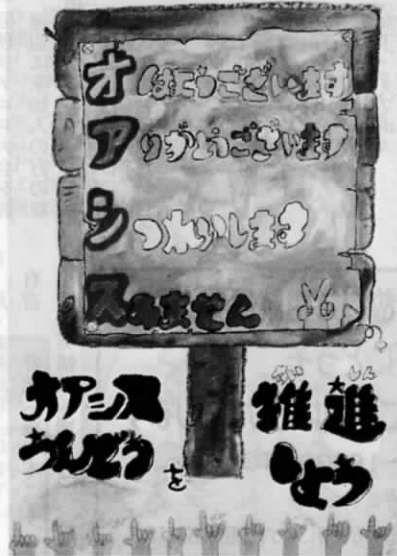 オはようございます
アりがとうございます
シつれいします
スみません
オアシス
うんどうを
すいしん
推進
しよう